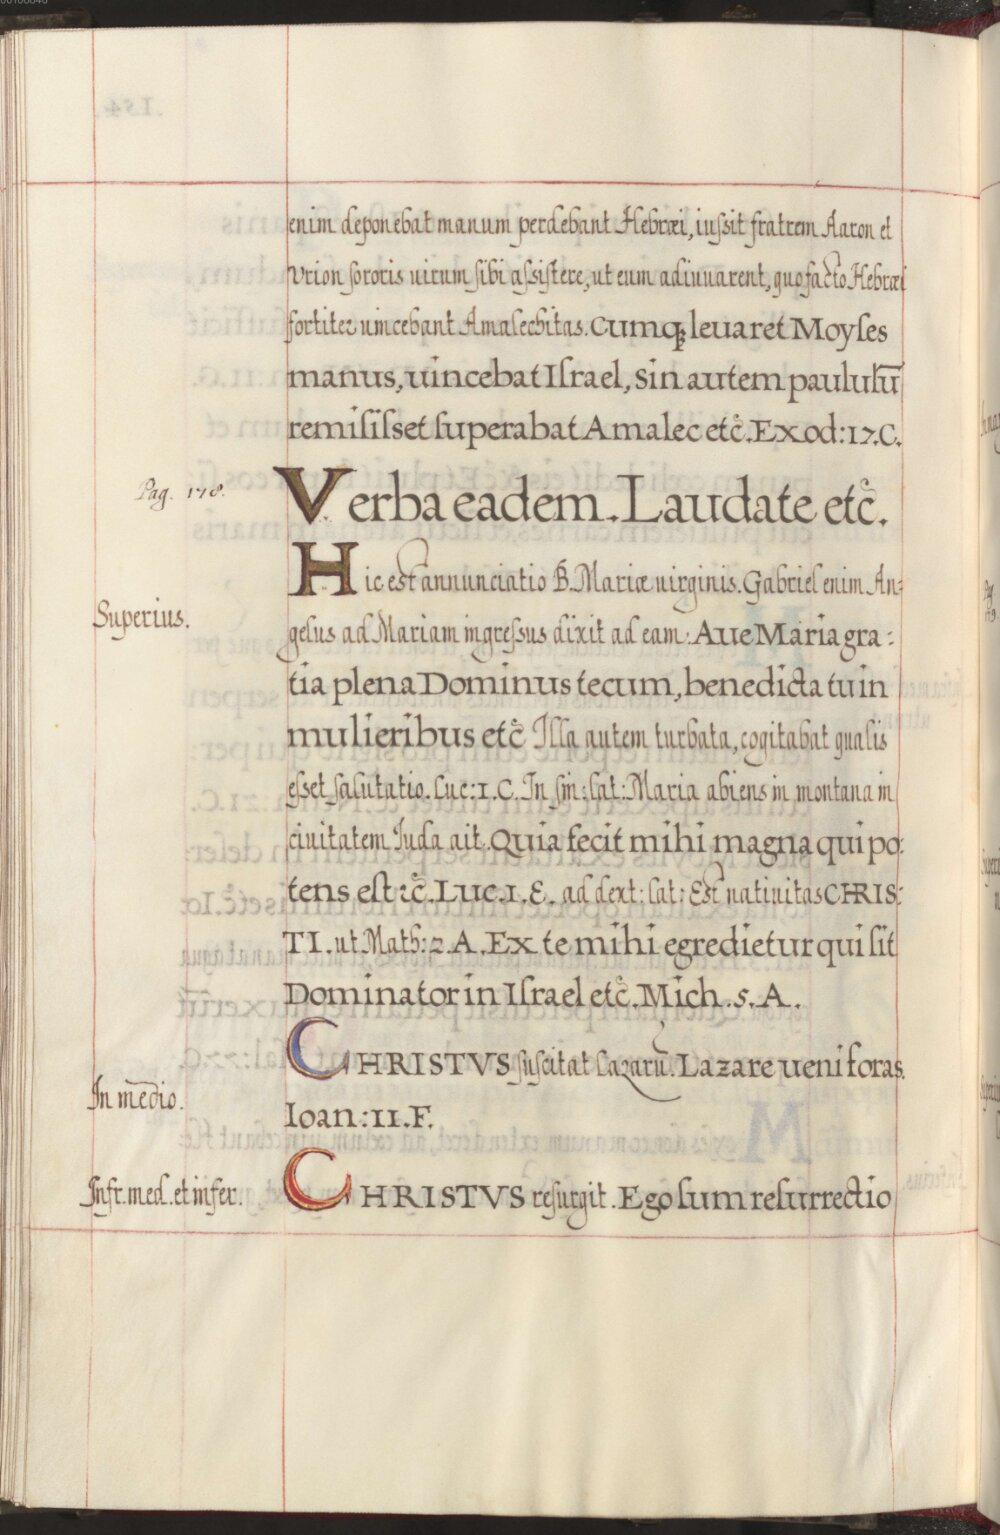 enim deponebat manum perdebant Hebræi, iuſsit fratrem Aaron et
Vrion ſororis uirum ſibi aſsiſtere, ut eum adiuuarent, quo facto Hebræi
fortiter uincebant Amalechitas. Cumq; leuaret Moyſes
manus, uincebat Iſrael, ſin autem paululū
remiſiſset ſuperabat Amalec etc̃. Exod: 17. C.
Pag. 178.
Verba eadem. Laudate etc̃.
Hic est annunciatio B. Mariæ uirginis. Gabriel enim An:
Superius.
gelus ad Mariam ingreſsus dixit ad eam: Aue Maria gra:
tia plena Dominus tecum, benedicta tu in
mulieribus etc̃ Illa autem turbata, cogitabat qualis
eſset ſalutatio. Luc: 1. C. In ſin: lat: Maria abiens in montana in
ciuitatem Iuda ait. Quia fecit mihi magna qui po:
tens eſt ꝛc̃. Luc. 1. E. ad dext: lat: Est natiuitas CHRIS:
TI. ut Math: 2. A. Ex te mihi egredietur qui ſit
Dominator in Iſrael etc̃. Mich. 5. A.
CHRISTVS ſuſcitat Lazarū. Lazare ueni foras.
In medio.
Ioan: 11. F.
Infr. med. et infer.
CHRISTVS reſurgit. Ego ſum reſurrectio